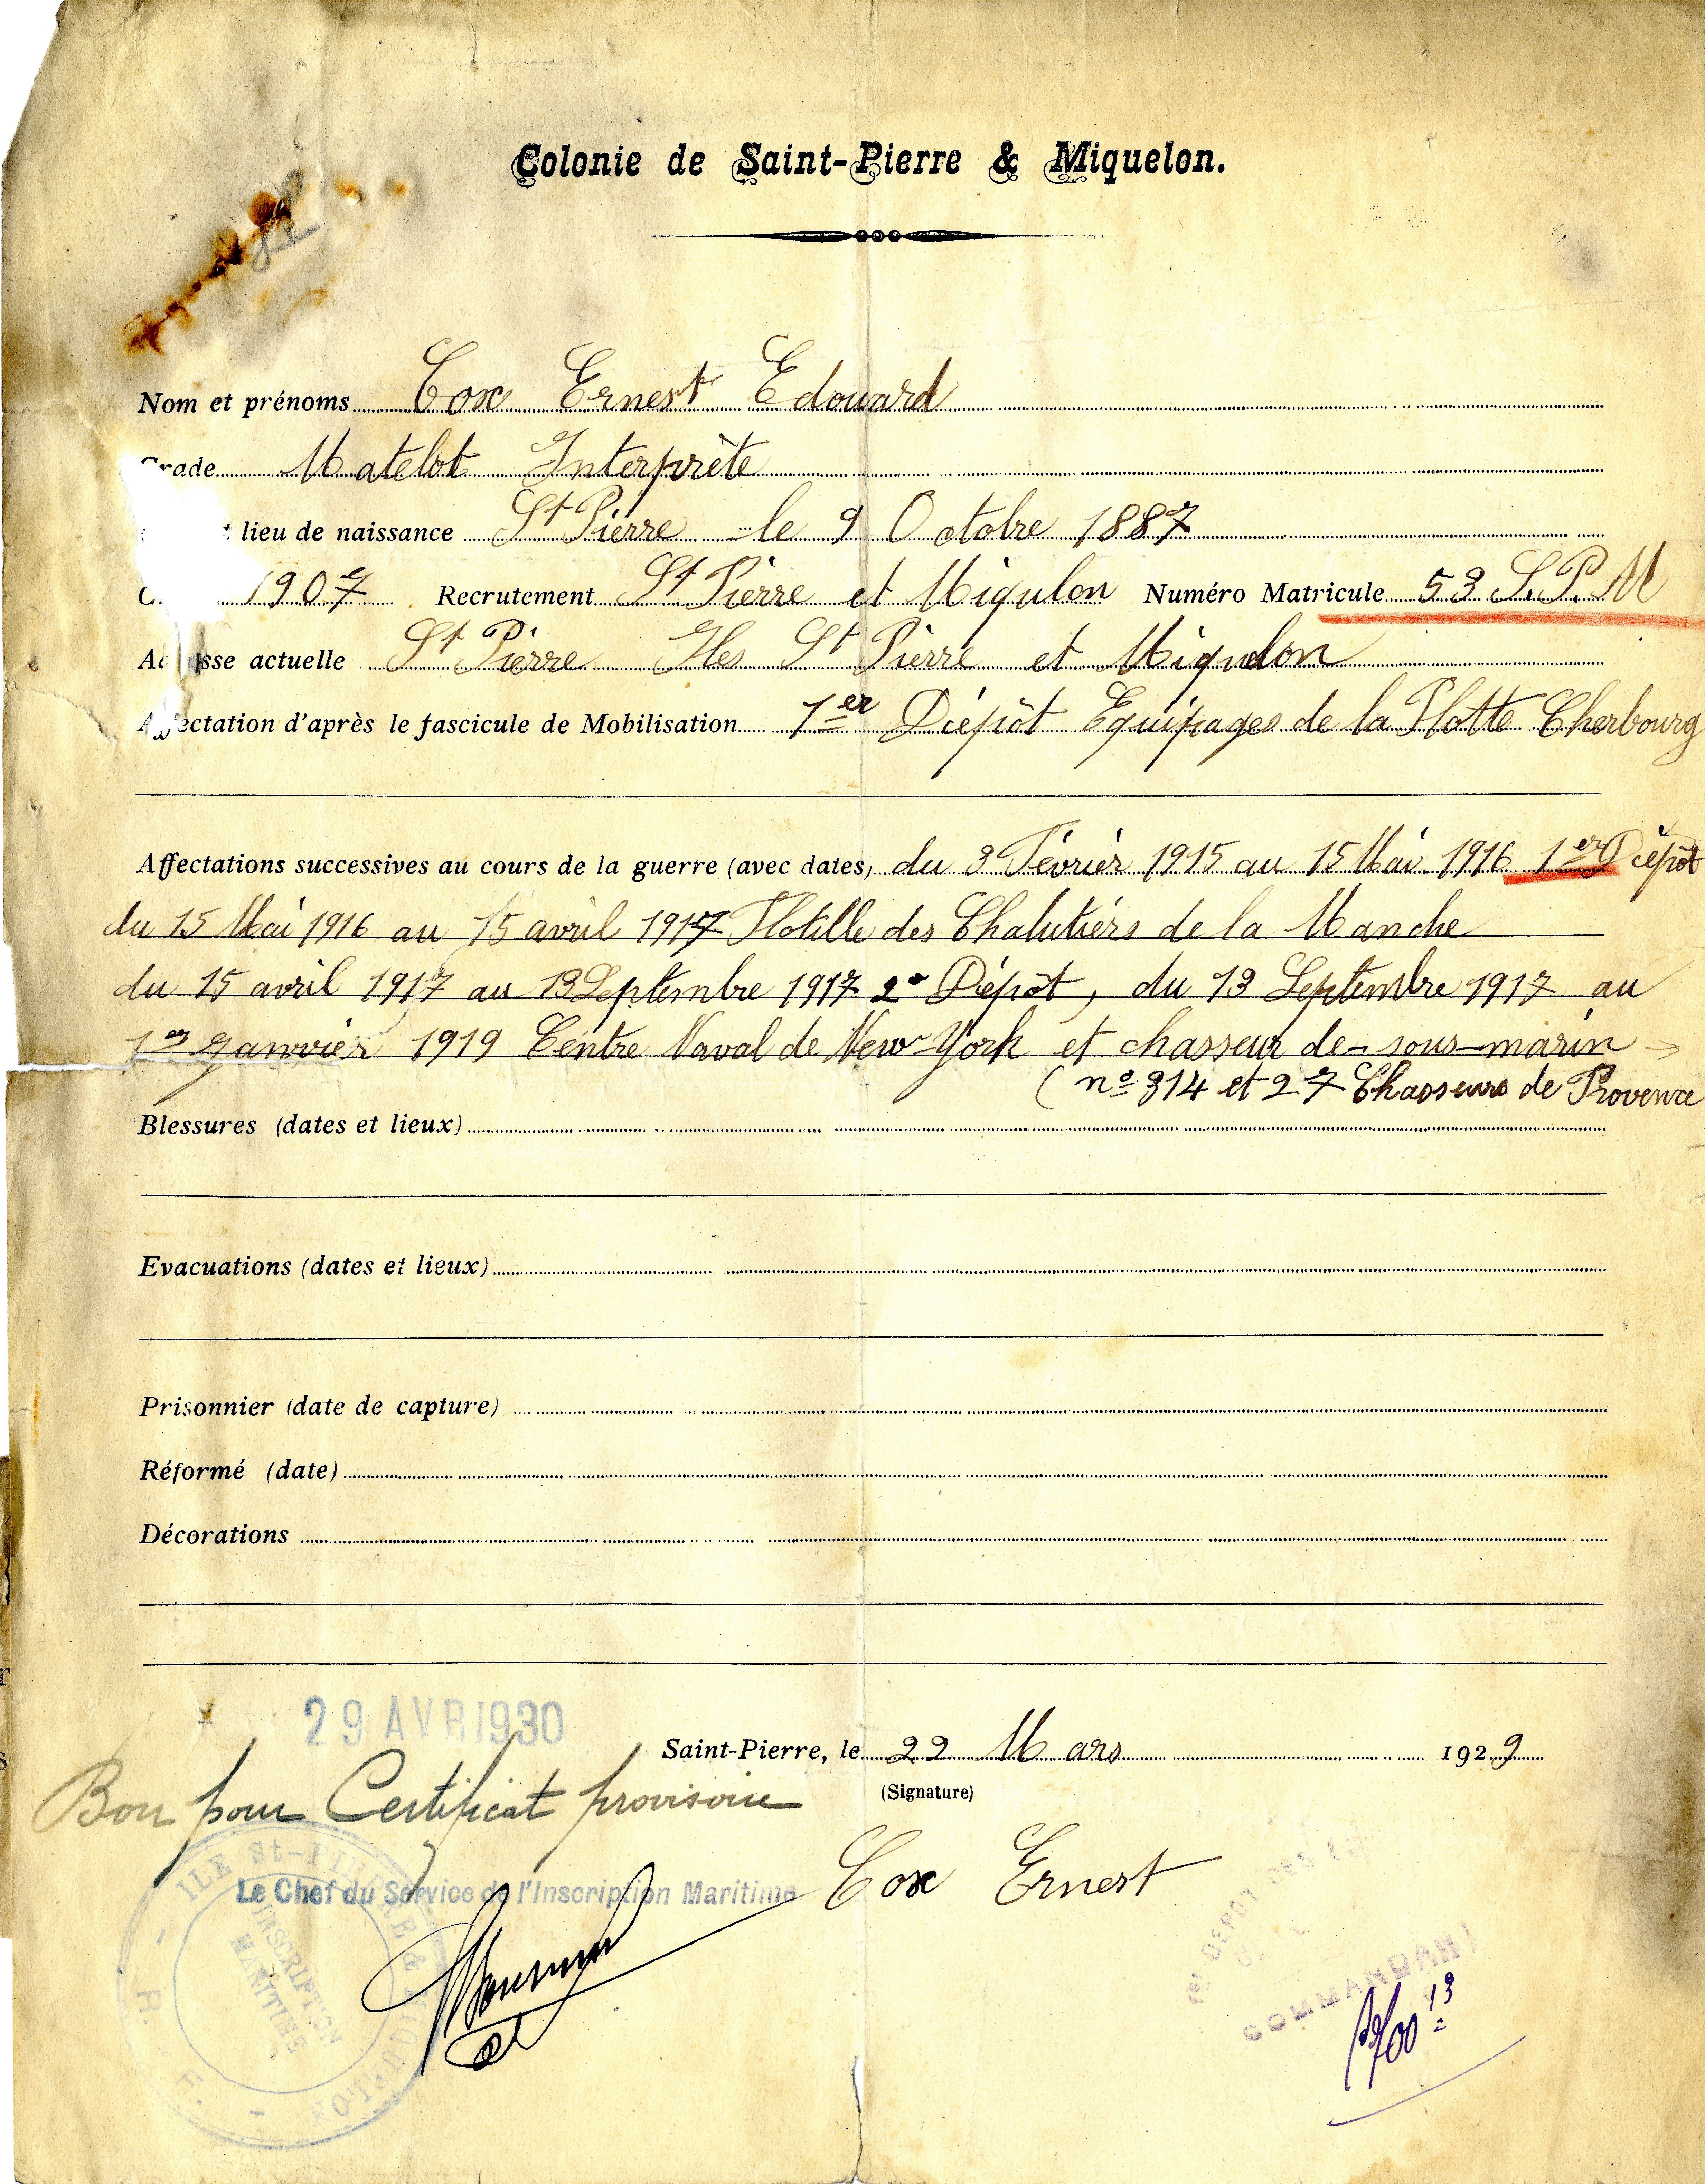 Colonie de Saint-Pierre & Miquelon.
Nom et prénoms Cox Ernest Edouard
rade Matelot Interprète
lieu de naissance St Pierre le 9 Octobre 1887
1907 Recrutement St Pierre et Miqulon Numéro Matricule 53 S.P.M
sse actuelle St Pierre Iles St Pierre et Miquelon
Affectation d'après le fascicule de Mobilisation 1er Dépôt Equipages de la Flotte Cherbourg
Affectations successives au cours de la guerre (avec dates) du 3 Février 1915 au 15 Mai 1916 1er Dépôt
du 15 Mai 1916 au 15 avril 1917 Flotille des Chalutiérs de la Manche
du 15 avril 1917 au 13 Septembre 1917 2e Dépôt, du 13 Septembre 1917 au
1er Janvier 1919 Centre Naval de New-York et chasseur de-sous-marin
(no 314 et 27 Chasseurs de Provence
Blessures (dates et lieux)
Evacuations (dates et lieux)
Prisonnier (date de capture)
Réformé (date)
Décorations
29 AVR 1930
Saint-Pierre, le 22 Mars 1929
(Signature)
Bon pour Certificat provisoire
Le Chef du Service de l'Inscription Maritime
Cox Ernest
ILE St-PIERRE & MIQUELON
INSCRIPTION
MARITIME
COMMANDANT